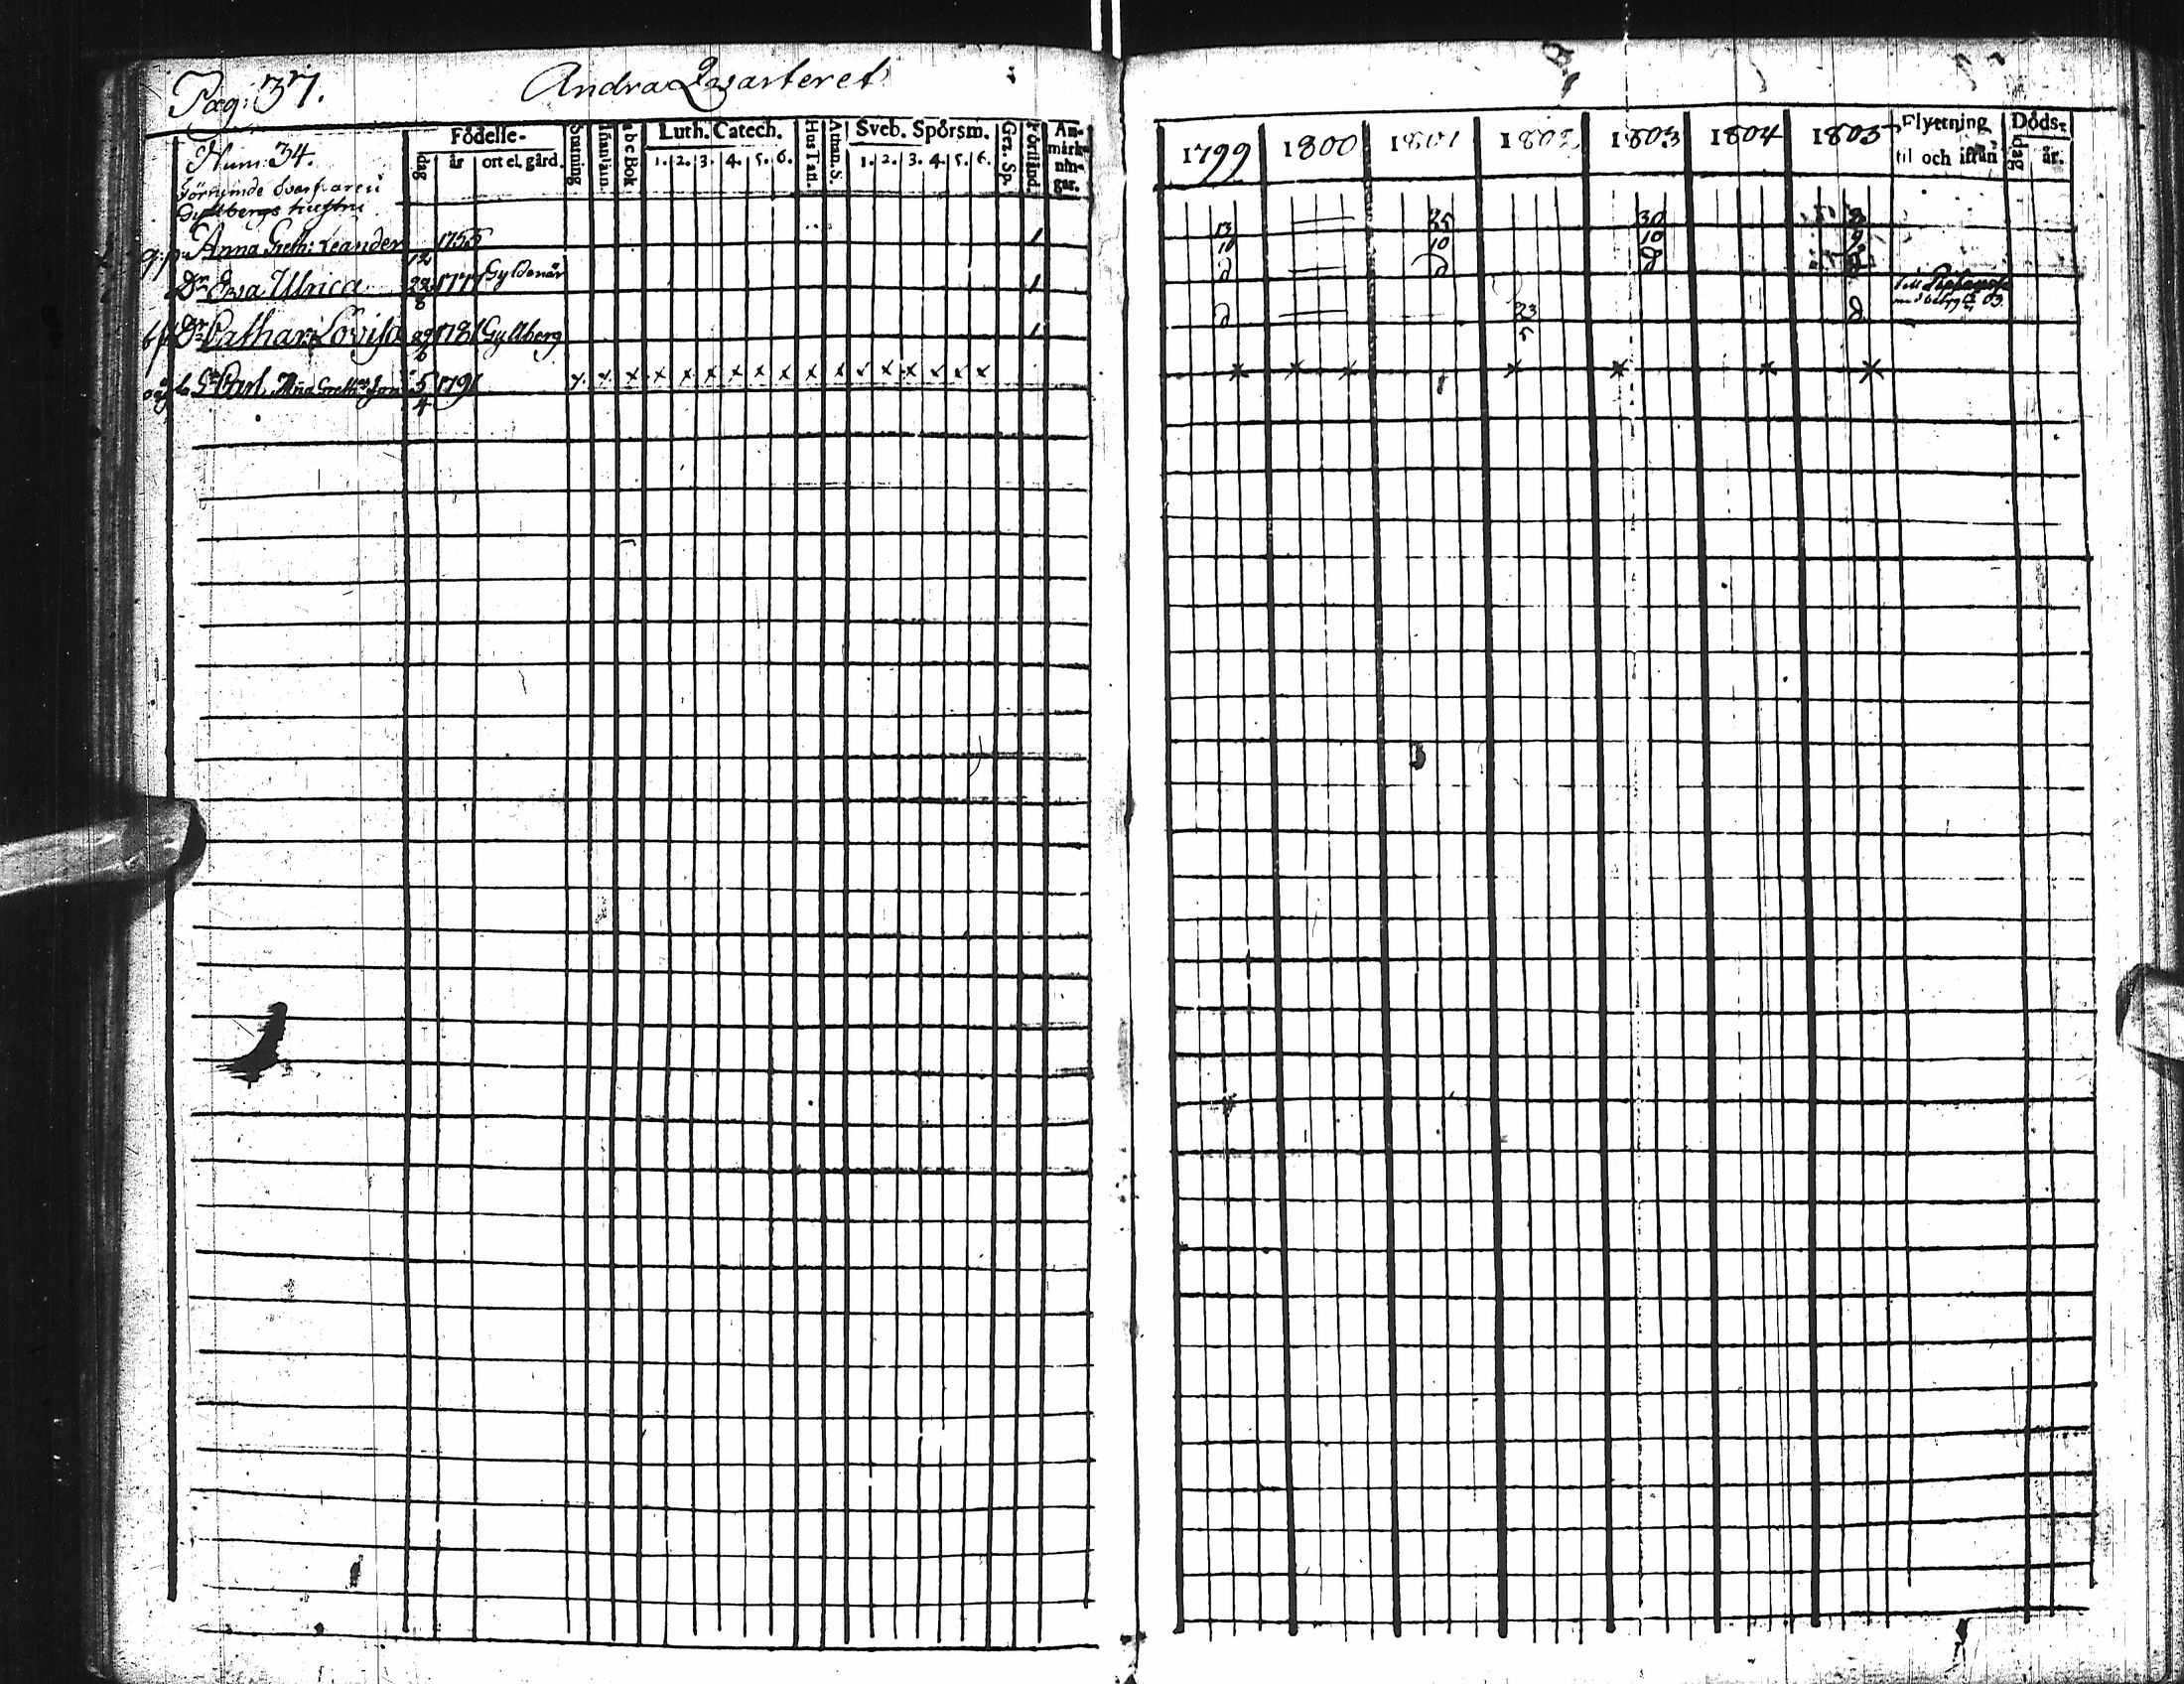 Pag: 37.
Andra Qvarteret
Num: 34.
Födelse-
dag
år
ort el. gård.
Stafning
Innanläsn.
a b c Bok
Luth. Catech.
1. 2. 3. 4. 5. 6.
Hus Tafl.
Athan. S.
Sveb. Spörsm.
1. 2. 3. 4. 5. 6.
Gez. Sp.
Förstånd.
An-
märk-
nin-
gar.
1799 1800 1801 1802 1803 1804 1805
Flyttning
til och ifrån
Döds-
dag
år.
Gyllbergs hustru
Anna Greth: Leander 1755 1
13 25 30 8
10 10 10 9
Dr Ewa Ulrica 22/8 1777 Gyldenär 1
d d d
Dr Cathar: Lovisa 29/6 1781 Gyllberg 1
d 23/5 d
Sn Carl Anna Greth: son 5/4 1791 x x x x x x x x x x x x x x x x x
x x x x x x x